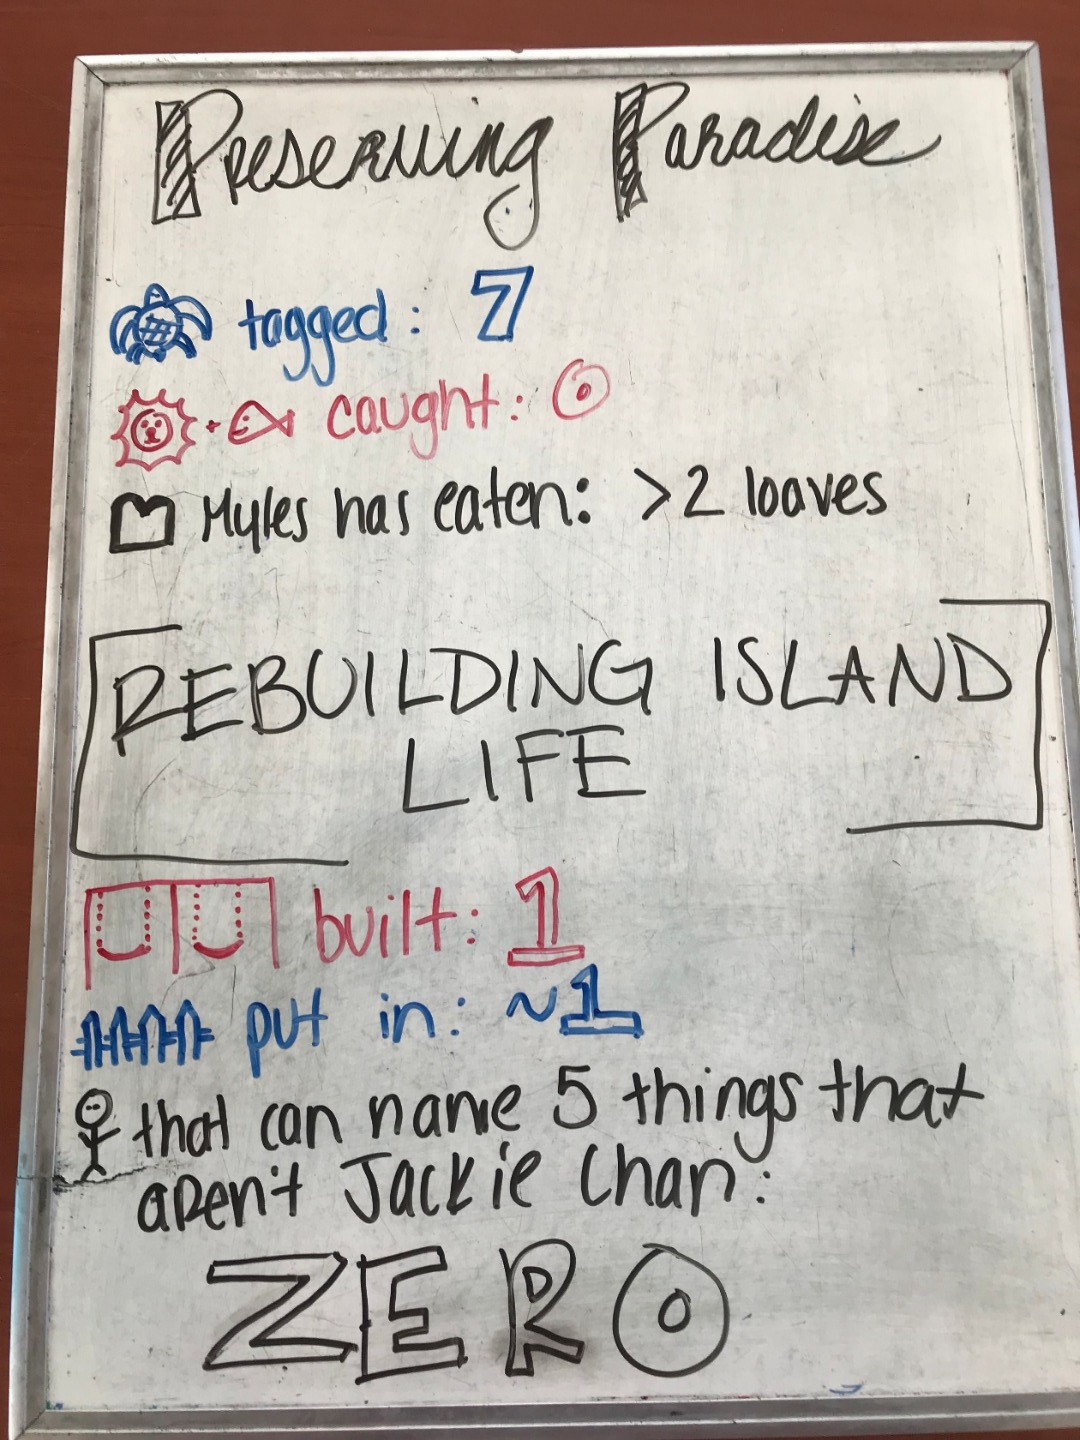 Preserving Paradise
tagged: 7
+ caught: 0
Myles has eaten: >2 loaves
REBUILDING ISLAND
LIFE
built: 1
put in: ~1
that can name 5 things that
aren't Jackie Chan:
ZERO